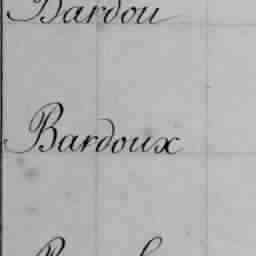 Bardou
Bardoux